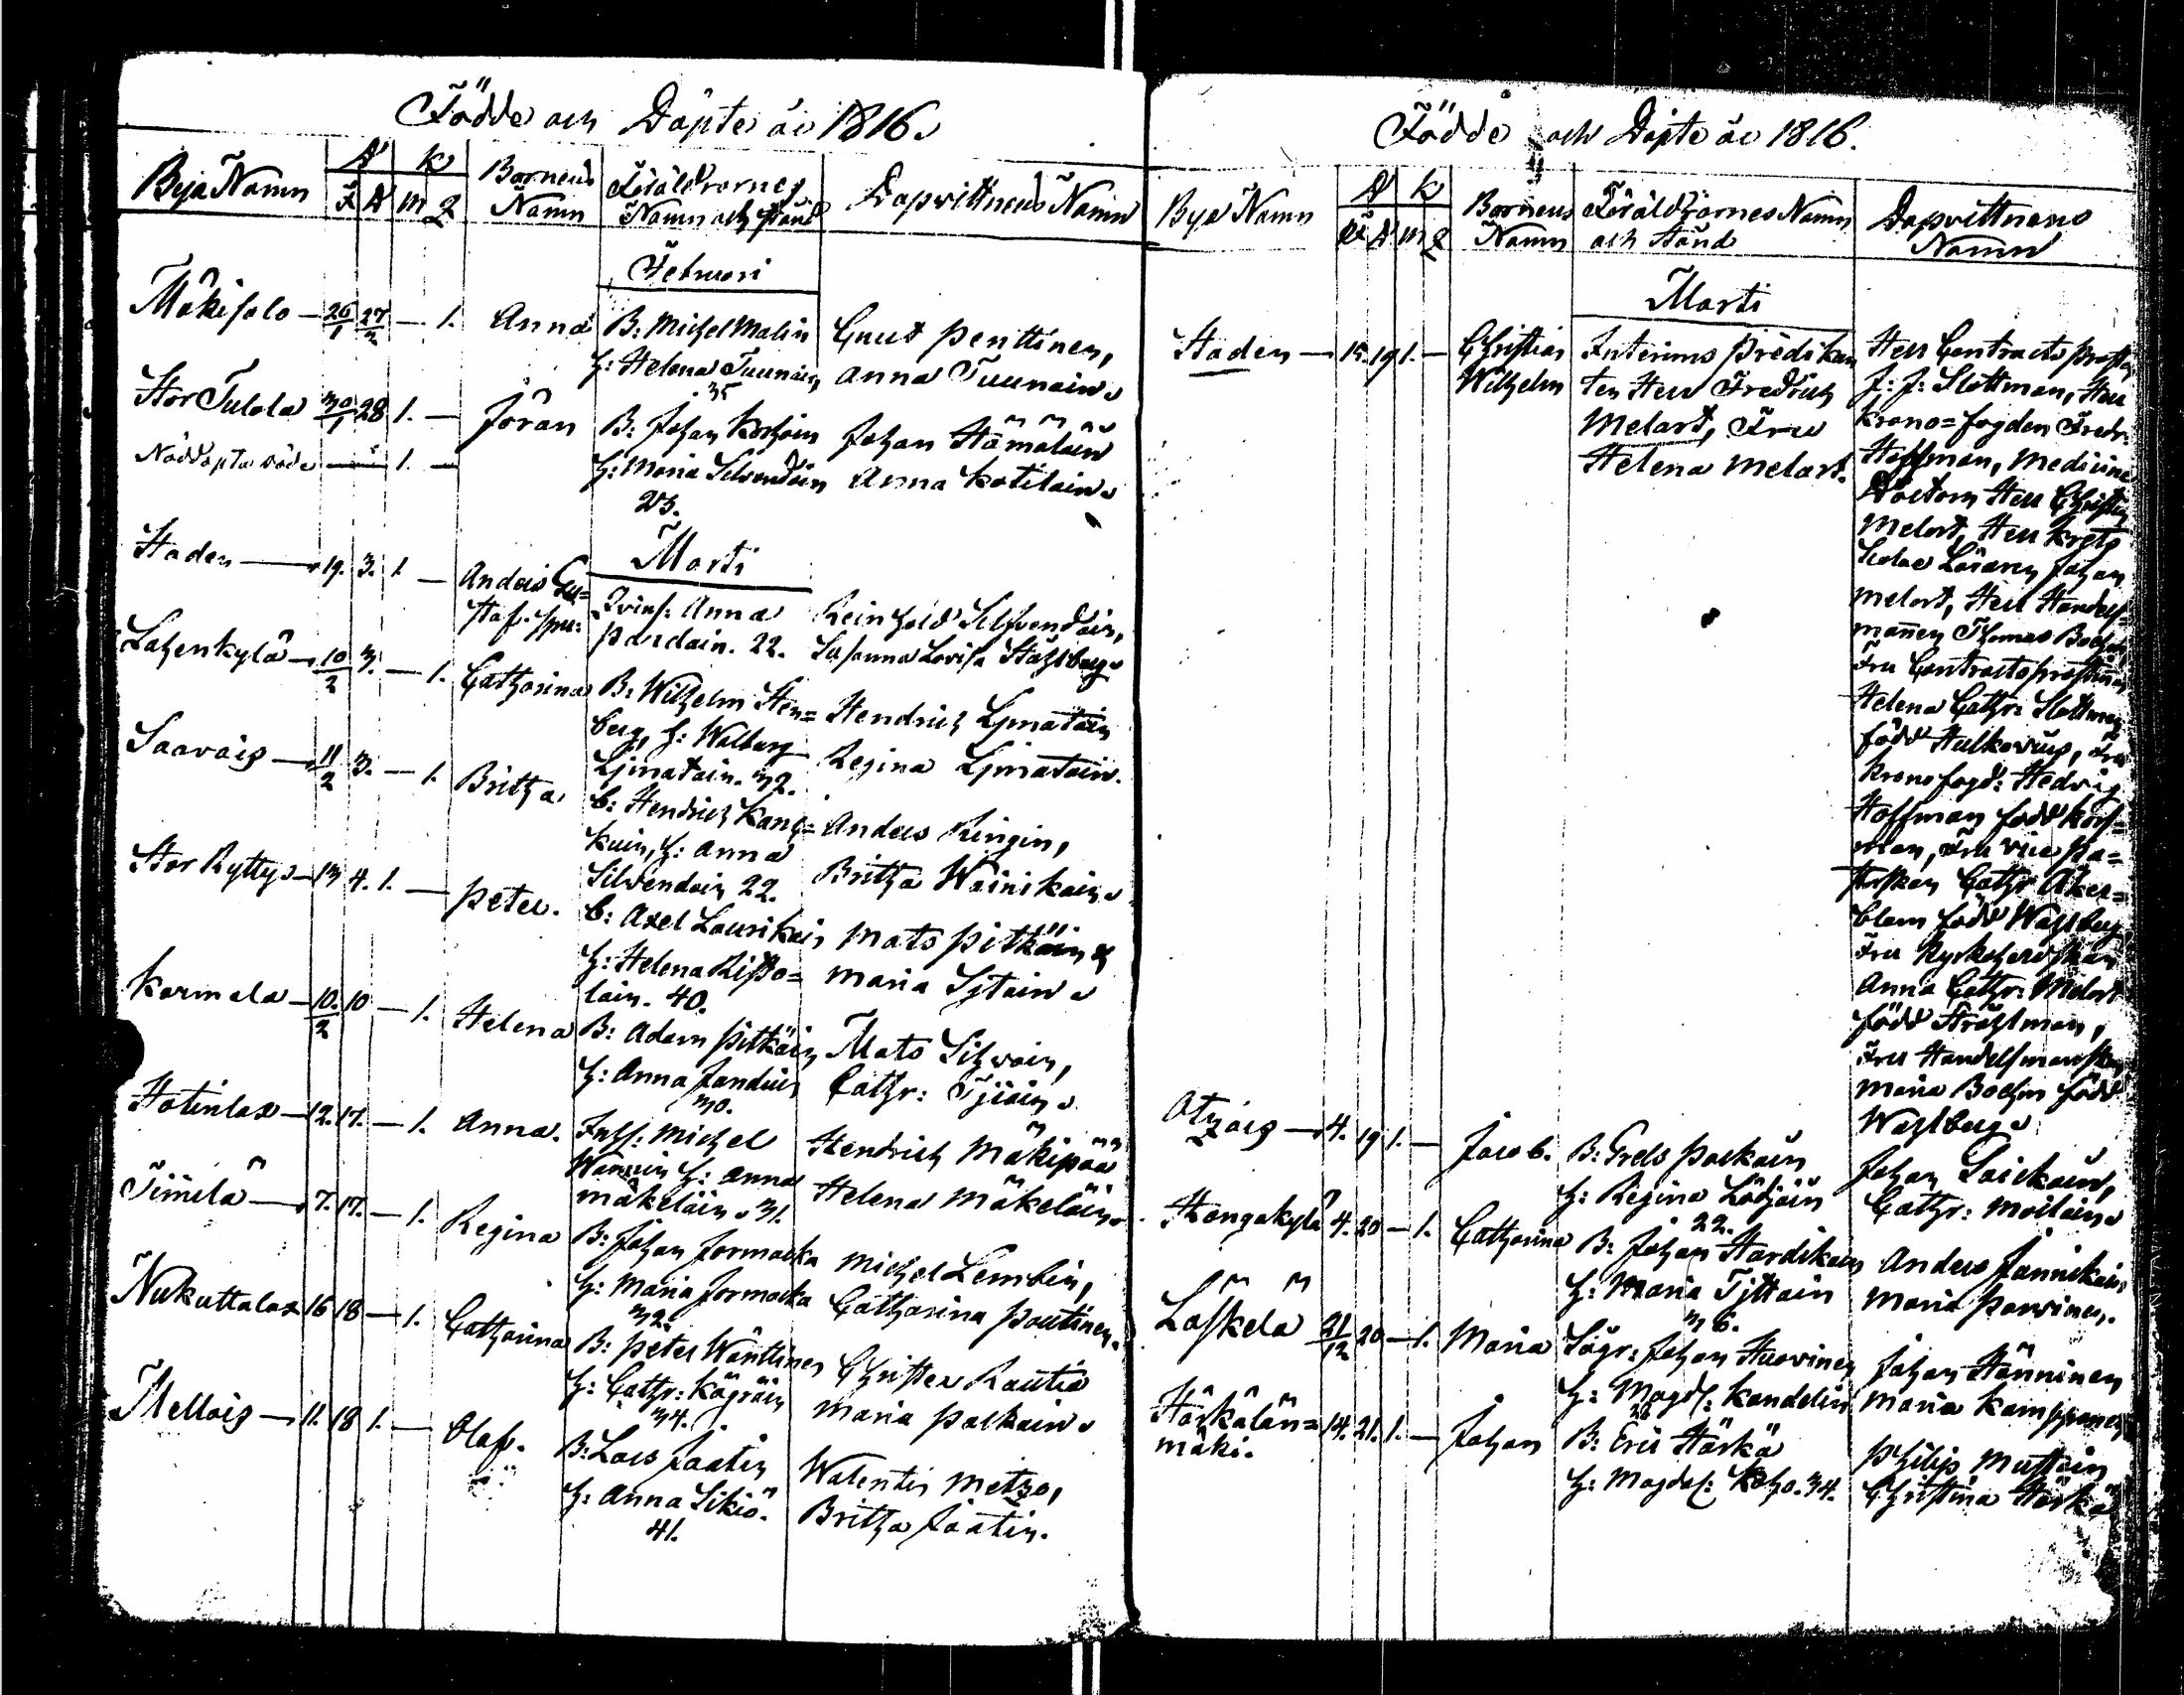 Födde och Döpte år 1816.
Bya Namn
D
K
F D m q
Barnens Namn
Föräldrarnes Namn och Stånd
Dopvittnens Namn
Februari
Mäkisalo — 26/1 27/2 — 1. Anna
B: Michel Malin
H: Helena Tuunain
35
Gust Penttinen,
Anna Tuunain
Stor Tulola 30/1 28 1. — Jöran
B: Johan Korhoin
H: Maria Silvendoin
23.
Johan Hämäläin
Anna Kotilain
Nöddöpta döde — 1. —
Marti
Staden — 19. 3. 1. — Anders Gu=
staf. spu:
Qvinsp. Anna
Pardain. 22.
Reinhold Silfvendoin,
Susanna Lovisa Ståhlberg
Lahenkylä — 10/2 3. — 1. Catharina
B: Wilhelm Sten=
berg, H: Walborg
Ljmatain. 32.
Hendrich Ljmatain
Regina Ljmatain.
Saarois — 11/2 3. — 1. Britha
B: Hendrich Kang=
kuin, H: Anna
Silvendoin 22.
Anders Ringin,
Britha Wainikain
Stor Ryttys — 13 4. 1. — Peter.
B: Axel Laurikain
H: Helena Risto=
lain. 40.
Mats Pitkäin
Maria Sjtain
Karmala — 10./2 10 — 1. Helena
B: Adam Pitkäin
H: Anna Jandin
30.
Mats Sihvoin,
Cathr: Tjiäin
Hotinlax — 12. 17. — 1. Anna.
Inhs: Michel
Wannin H: Anna
Mäkeläin 31.
Hendrich Mäkipää
Helena Mäkeläin
Tiimilä — 7. 17. — 1. Regina
B: Johan Jormacka
H: Maria Jormacka
32.
Michel Lembin,
Catharina Pautinen.
Nukuttalax 16 18 — 1. Catharina
B: Peter Wänttinen
H: Cathr: Kägräin
34.
Christer Rautio
Maria Palkain
Mellois — 11. 18 1. — Olaf.
B: Lars Jaatin
H: Anna Sikiö.
41.
Walentin Metzo,
Britha Jäätin.
Födde och Döpte år 1816.
Bya Namn
D
K
F D m q
Barnens Namn
Föräldrarnes Namn och Stånd
Dopvittnens Namn
Marti
Staden — 15. 19 1. — Christian
Wilhelm
Interims Predikan
ten Herr Fredrich
Melart, Fru
Helena Melart.
Herr Contracts Prosten
J: J: Slottman, Herr
Krono=fogden Fredr:
Hoffman, Medicine
Doctorn Herr Christian
Melart, Herr Krets
Schole Läraren Johan
Melart, Herr Handels=
mannen Thomas Boehm
Fru Contractsprostinnan
Helena Cathr: Slottman
född Hulkovius, Fru
Kronofogd: Hedvig
Hoffman född Hors=
man, Fru vice Pa=
storskan Cathr Åker=
blom född Wahlberg
Fru Kyrkoherdskan
Anna Cathr: Melart
född Stråhlman,
Fru Handelsmanskan
Maria Boehm född
Wahlberg
Otzois — 4. 19 1. — Jacob.
B: Grels Packain
H: Regina Lödjöin
22.
Johan Laickain,
Cathr: Moilain
Hongakylä 4. 20 — 1. Catharina
B: Johan Hardikain
H: Maria Tjttain
36.
Anders Jännikäin
Maria Parvinen.
Läskelä 21/12 20 — 1. Maria
Lögr: Johan Huovinen
H: Magdl: Kandelin
28
Johan Hänninen
Maria Kamppanen
Härkälän=
mäki. 14. 21. 1. — Johan
B: Eric Härkä
H: Magdal: Koho. 34.
Philip Mustoin
Christina Härkä